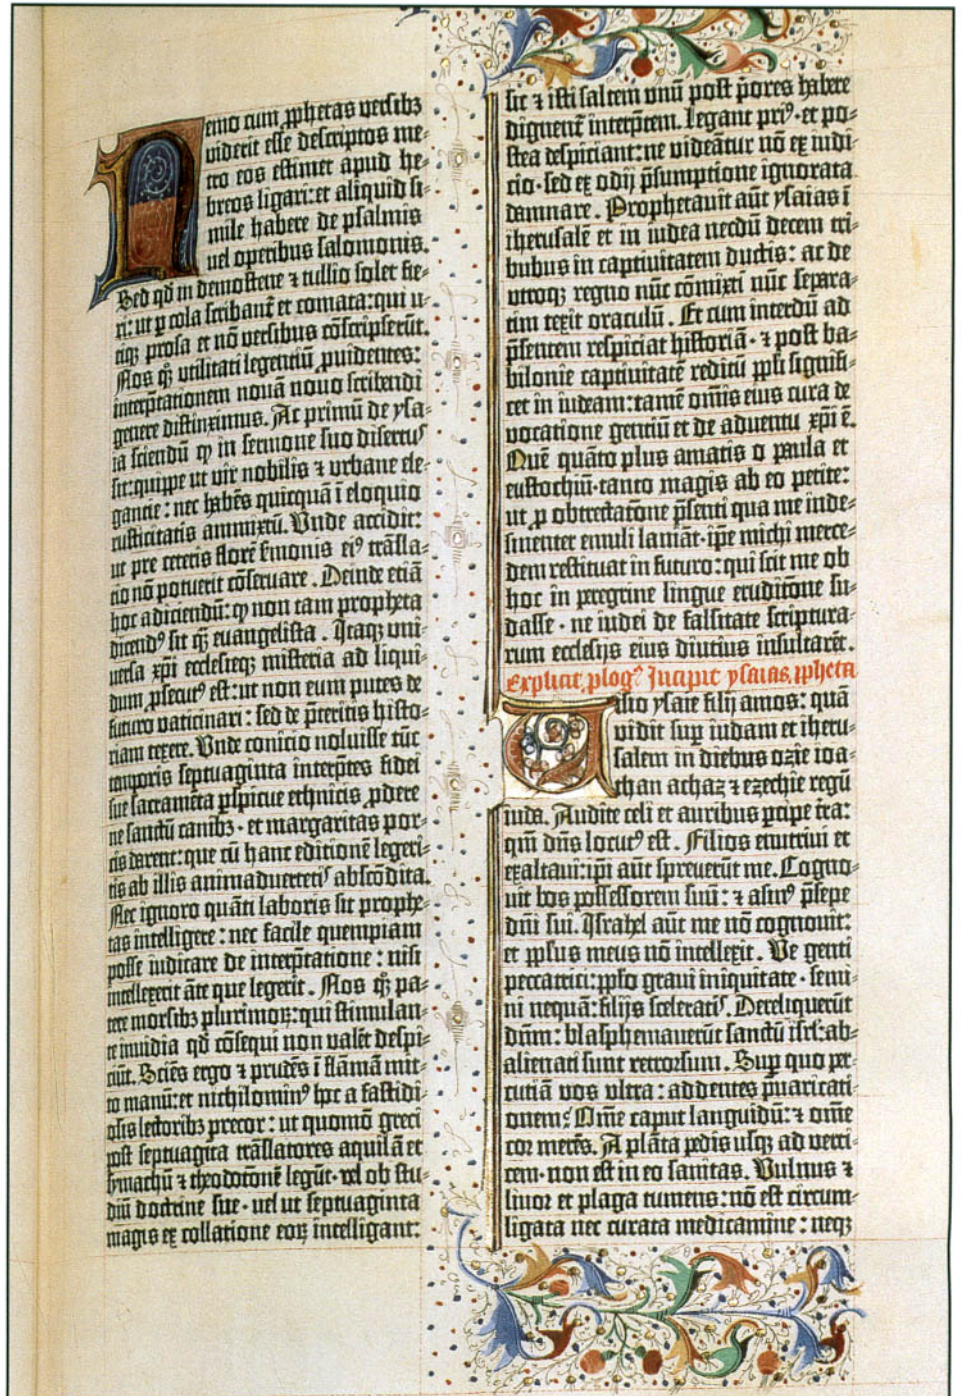 Nemo cum ꝓphetas versibꝫ
viderit esse descriptos me⸗
tro eos estimet apud he⸗
breos ligari: et aliquid si⸗
mile habere de psalmis
vel operibus salomonis.
Sed qđ in demostene ⁊ tullio solet fie⸗
ri: ut ꝑ cola scribant̄ et comata: qui u⸗
tiqꝫ prosa et nō versibus cōscripserūt.
Nos qꝫ̄ utilitati legentiū ꝓuidentes:
interp̄tationem nouā nouo scribendi
genere distinximus. Ac primū de ysa⸗
ia sciendū ꝙ in sermone suo disertꝰ
sit: quippe ut vir nobilis ⁊ urbane ele⸗
gantie: nec habēs quicquā ī eloquio
rusticitatis ammixtū. Unde accidit:
ut pre ceteris florē s̄monis eiꝰ trāsla⸗
tio nō potuerit cōseruare. Deinde etiā
hoc adiciendū: ꝙ non tam propheta
dicendꝰ sit qꝫ̄ euangelista. Itaqꝫ uni⸗
uersa xp̄i ecclesieqꝫ misteria ad liqui⸗
dum ꝓsecutꝰ est: ut non eum putes de
futuro vaticinari: sed de p̄teritis histo⸗
riam texere. Unde conicio noluisse tūc
temporis septuaginta interp̄tes fidei
sue sacramēta ꝑspicue ethnicis ꝓdere
ne sanctū canibꝫ · et margaritas por⸗
cis darent: que cū hanc editionē legeri⸗
tis ab illis animaduertetis abscōdita.
Nec ignoro quāti laboris sit prophe⸗
tas intelligere: nec facile quempiam
posse iudicare de interp̄tatione: nisi
intellexerit āte que legerit. Nos qꝫ̄ pa⸗
tere morsibꝫ plurimoꝝ: qui stimulan⸗
te inuidia qđ cōsequi non valēt despi⸗
ciūt. Sciēs ergo ⁊ prudēs ī flāmā mit⸗
to manū: et nichilominꝰ hoc a fastidi⸗
osis lectoribꝫ precor: ut quomō greci
post septuagīta trāslatores aquilā et
symachū ⁊ theodotonē legūt · vel ob stu⸗
diū doctrine sue · uel ut septuaginta
magis ex collatione eoꝝ intelligant:
sic ⁊ isti saltem unū post p̄ores habere
dignent̄ interp̄tem. Legant priꝰ · et po⸗
stea despiciant: ne videātur nō ex iudi⸗
cio · sed ex odij p̄sumptione ignorata
damnare. Prophetauit aūt ysaias ī
iherusalē et in iudea necdū decem tri⸗
bubus in captiuitatem ductis: ac de
utroqꝫ regno nūc cōmixti nūc separa⸗
tim texit oraculū. Et cum interdū ad
p̄sentem respiciat historiā · ⁊ post ba⸗
bilonie captiuitatē reditū ppl̄i signifi⸗
cet in iudeam: tamē om̄is eius cura de
vocatione gentiū et de aduentu xp̄i ē.
Quē quāto plus amatis o paula et
eustochiū · tanto magis ab eo petite:
ut ꝓ obtrectatōne p̄senti qua me inde⸗
sinenter emuli laniāt · ip̄e michi merce⸗
dem restituat in futuro: qui scit me ob
hoc in peregrine lingue eruditōne su⸗
dasse · ne iudei de falsitate scriptura⸗
rum ecclesijs eius diutius insultarēt.
Explicit ꝓlogꝰ Incipit ysaias ꝓpheta
Visio ysaie filij amos: quā
vidit suꝑ iudam et iheru⸗
salem in diebus ozie ioa⸗
than achaz ⁊ ezechie regū
iuda. Audite celi et auribus ꝑcipe t̄ra:
qm̄ dn̄s locutꝰ est. Filios enutriui et
exaltaui: ip̄i aūt spreuerūt me. Cogno⸗
uit bos possessorem suū: ⁊ asinꝰ p̄sepe
dn̄i sui. Israhel aūt me nō cognouit:
et ppl̄us meus nō intellexit. Ve genti
peccatrici: ppl̄o graui iniquitate · semi⸗
ni nequā: filijs sceleratis. Dereliquerūt
dn̄m: blasphemauerūt sanctū isrl̄: ab⸗
alienati sunt retrorsum. Suꝑ quo per⸗
cutiā vos ultra: addentes p̄uaricati⸗
onem? Om̄e caput languidū: ⁊ om̄e
cor merēs. A plāta pedis usqꝫ ad verti⸗
cem · non est in eo sanitas. Vulnus ⁊
liuor et plaga tumens: nō est circum⸗
ligata nec curata medicamine: neqꝫ